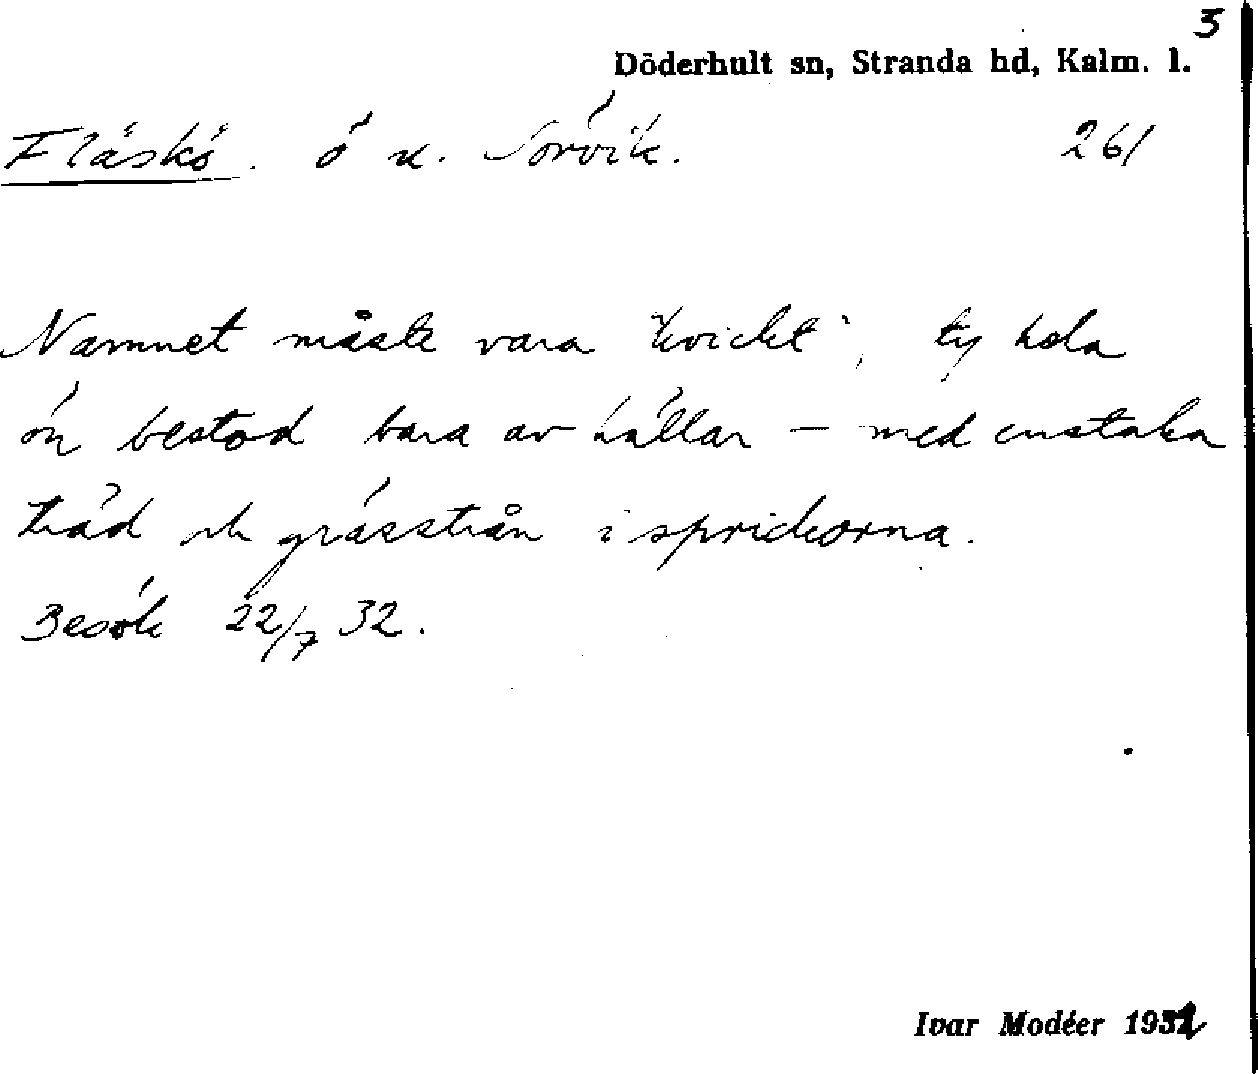 3
Döderhult sn, Stranda hd, Kalm. l.
Fläskö. ö u. Sörvik. 261
Namnet måste vara "kvickt", ty hela
ön bestod bara av hällar – med enstaka
träd och grässtrån i sprickorna.
Besök 22/7 32.
Ivar Modéer 1932